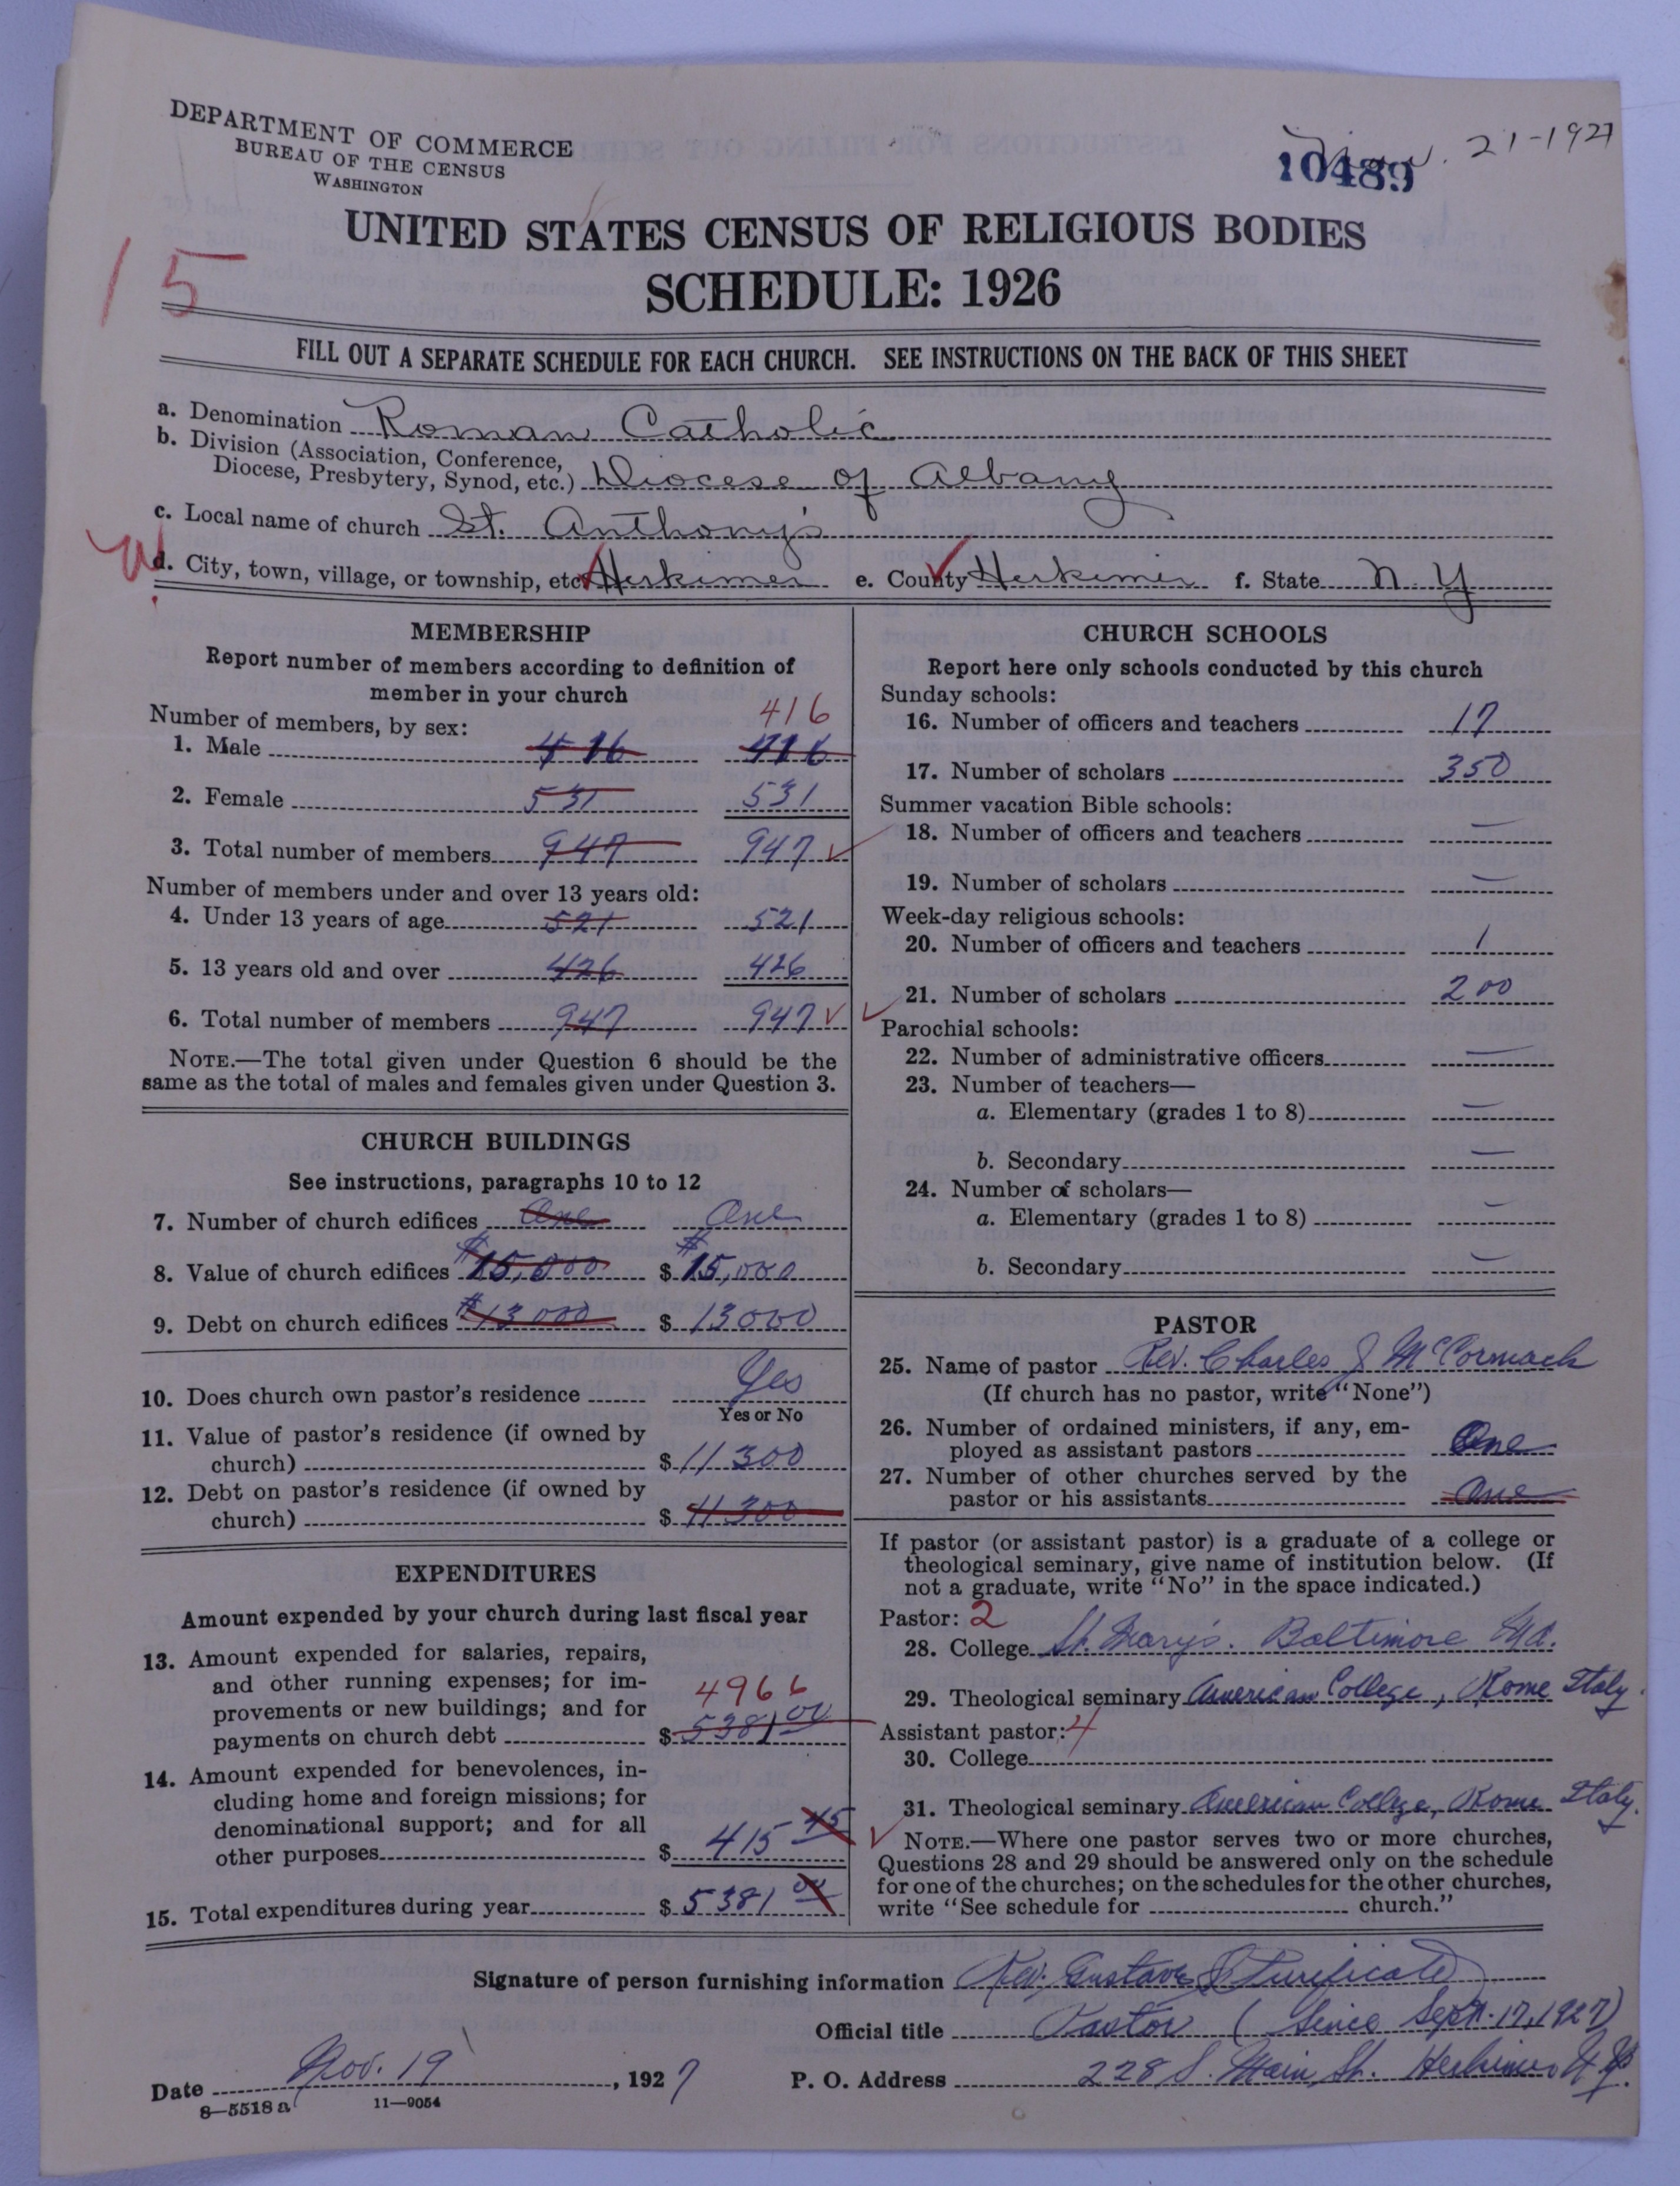 DEPARTMENT OF COMMERCE
BUREAU OF THE CENSUS
WASHINGTON
10489
21-1927
UNITED STATES CENSUS OF RELIGIOUS BODIES
15
SCHEDULE: 1926
FILL OUT A SEPARATE SCHEDULE FOR EACH CHURCH. SEE INSTRUCTIONS ON THE BACK OF THIS SHEET
a. Denomination Roman Catholic
b. Division (Association, Conference,
Diocese, Presbytery, Synod, etc.) Diocese of Albany
c. Local name of church St. Anthony's
d. City, town, village, or township, etc. Herkimer e. County Herkimer f. State N. Y
MEMBERSHIP
Report number of members according to definition of
member in your church
Number of members, by sex:
416
1. Male 416 416
2. Female 531 531
3. Total number of members 947 947
Number of members under and over 13 years old:
4. Under 13 years of age 521 521
5. 13 years old and over 426 426
6. Total number of members 947 947
NOTE.—The total given under Question 6 should be the
same as the total of males and females given under Question 3.
CHURCH BUILDINGS
See instructions, paragraphs 10 to 12
7. Number of church edifices One One
8. Value of church edifices $15,000 $ $15,000
9. Debt on church edifices $13000 $ 13000
10. Does church own pastor's residence Yes
Yes or No
11. Value of pastor's residence (if owned by
church) $ 11300
12. Debt on pastor's residence (if owned by
church) $ 11300
EXPENDITURES
Amount expended by your church during last fiscal year
13. Amount expended for salaries, repairs,
and other running expenses; for im-
provements or new buildings; and for
4966
payments on church debt $ 5381 00
14. Amount expended for benevolences, in-
cluding home and foreign missions; for
denominational support; and for all
other purposes $ 415 45
15. Total expenditures during year $ 5381 00
CHURCH SCHOOLS
Report here only schools conducted by this church
Sunday schools:
16. Number of officers and teachers 17
17. Number of scholars 350
Summer vacation Bible schools:
18. Number of officers and teachers —
19. Number of scholars —
Week-day religious schools:
20. Number of officers and teachers 1
21. Number of scholars 200
Parochial schools:
22. Number of administrative officers —
23. Number of teachers—
a. Elementary (grades 1 to 8) —
b. Secondary —
24. Number of scholars—
a. Elementary (grades 1 to 8) —
b. Secondary —
PASTOR
25. Name of pastor Rev. Charles J McCormack
(If church has no pastor, write "None")
26. Number of ordained ministers, if any, em-
ployed as assistant pastors One
27. Number of other churches served by the
pastor or his assistants One
If pastor (or assistant pastor) is a graduate of a college or
theological seminary, give name of institution below. (If
not a graduate, write "No" in the space indicated.)
Pastor: 2
28. College St. Mary's. Baltimore Md.
29. Theological seminary American College, Rome Italy.
Assistant pastor: 4
30. College
31. Theological seminary American College, Rome Italy.
NOTE.—Where one pastor serves two or more churches,
Questions 28 and 29 should be answered only on the schedule
for one of the churches; on the schedules for the other churches,
write "See schedule for church."
Signature of person furnishing information Rev. Gustave Purificato
Official title Pastor (Since Sept. 17, 1927)
Date Nov. 19, 1927 P. O. Address 228 S. Main St. Herkimer N.Y.
8—5518 a 11—9054